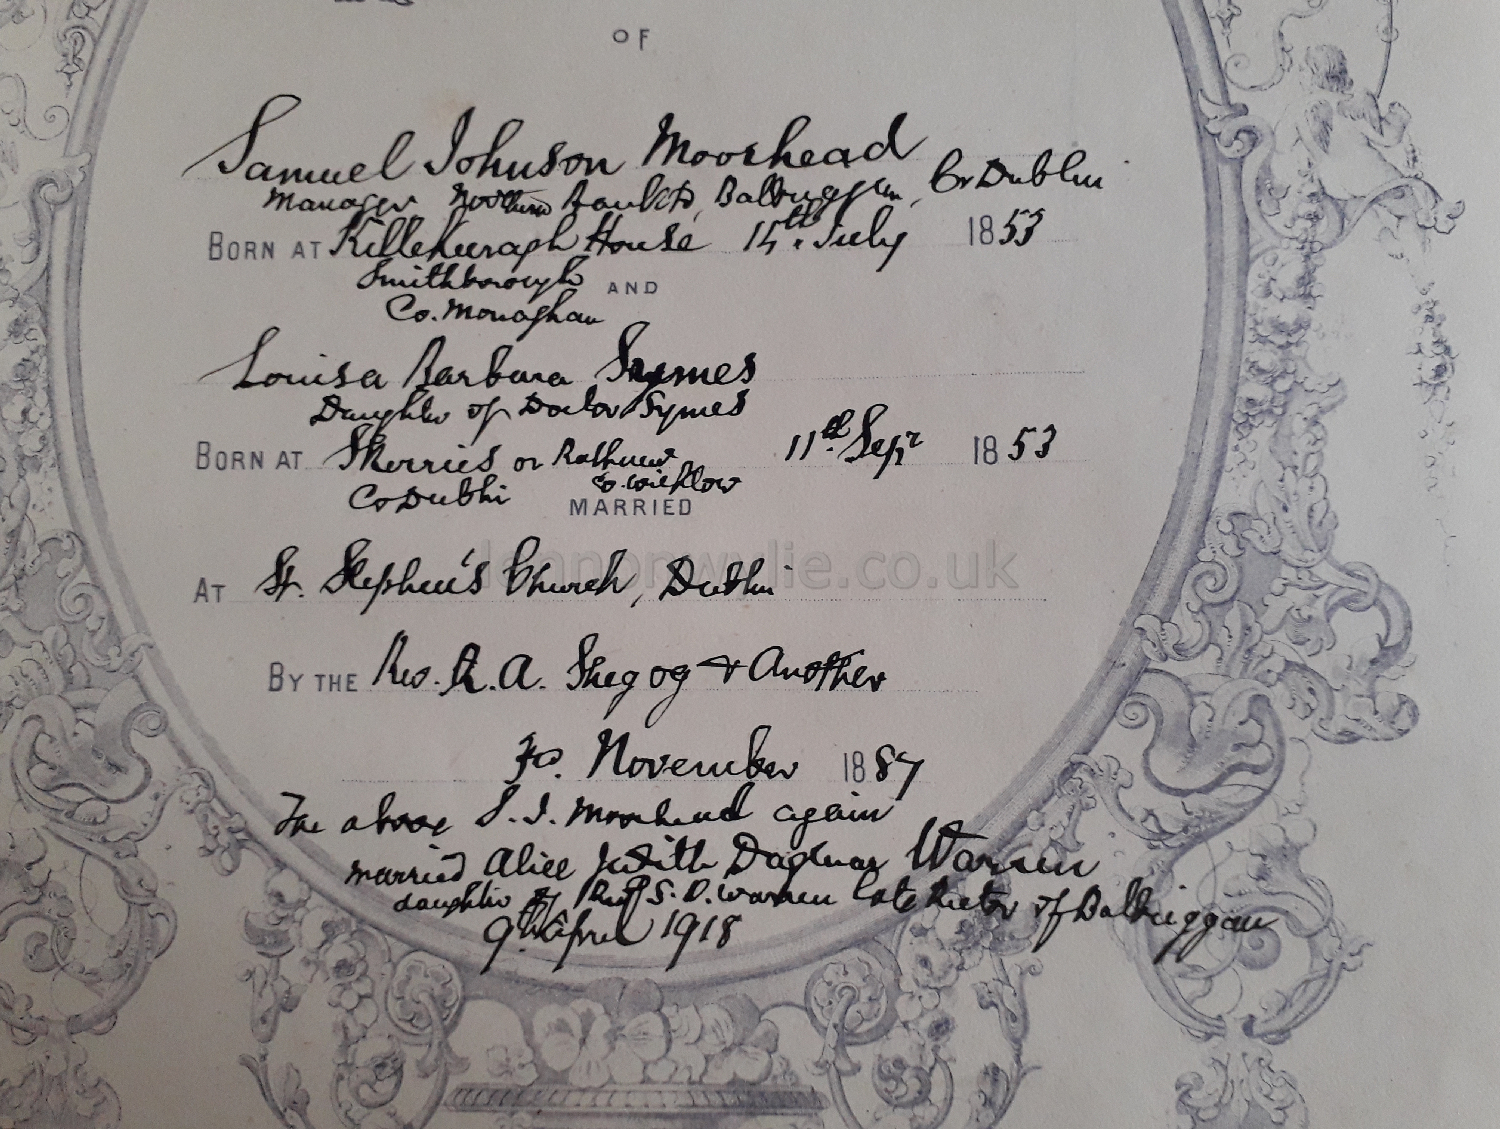 OF
Samuel Johnson Moorhead
Manager Northern Bank Ltd, Balbriggan, Co Dublin
BORN AT Killeneuragh House 14th July 1853
Smithborough
AND
Co. Monaghan
Louisa Barbara Symes
Daughter of Doctor Symes
BORN AT Skerries or Rathnew 11th Sepr 1853
Co Dublin Co. Wicklow
MARRIED
lennonwylie.co.uk
AT St. Stephen's Church, Dublin
BY THE Rev. R. A. Shegog & Another
November 1887
The above S. J. Moorhead again
married Alice Judith Dagmar Warren
daughter of S. D. Warren late Rector of Balbriggan
9th April 1918